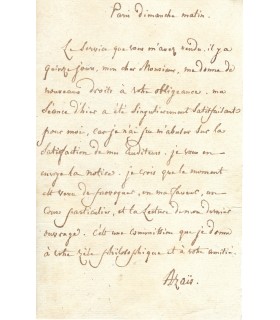 Paris dimanche matin.
Le Service que vous m'avez rendu, il y a
quinze jours, mon cher Monsieur, me donne de
nouveaux droits à votre obligeance. ma
Séance d'hier a été Singulièrement Satisfaisante
pour moi, car je n'ai pu m'abuser sur la
Satisfaction de mes Auditeurs. je vous en
envoye la notice. je crois que le moment
est venu de provoquer, en ma faveur, un
Cours particulier, et la Lecture de mon dernier
ouvrage. C'est une commission que je donne
à votre zèle philosophique et à votre amitié.
Azaïs.